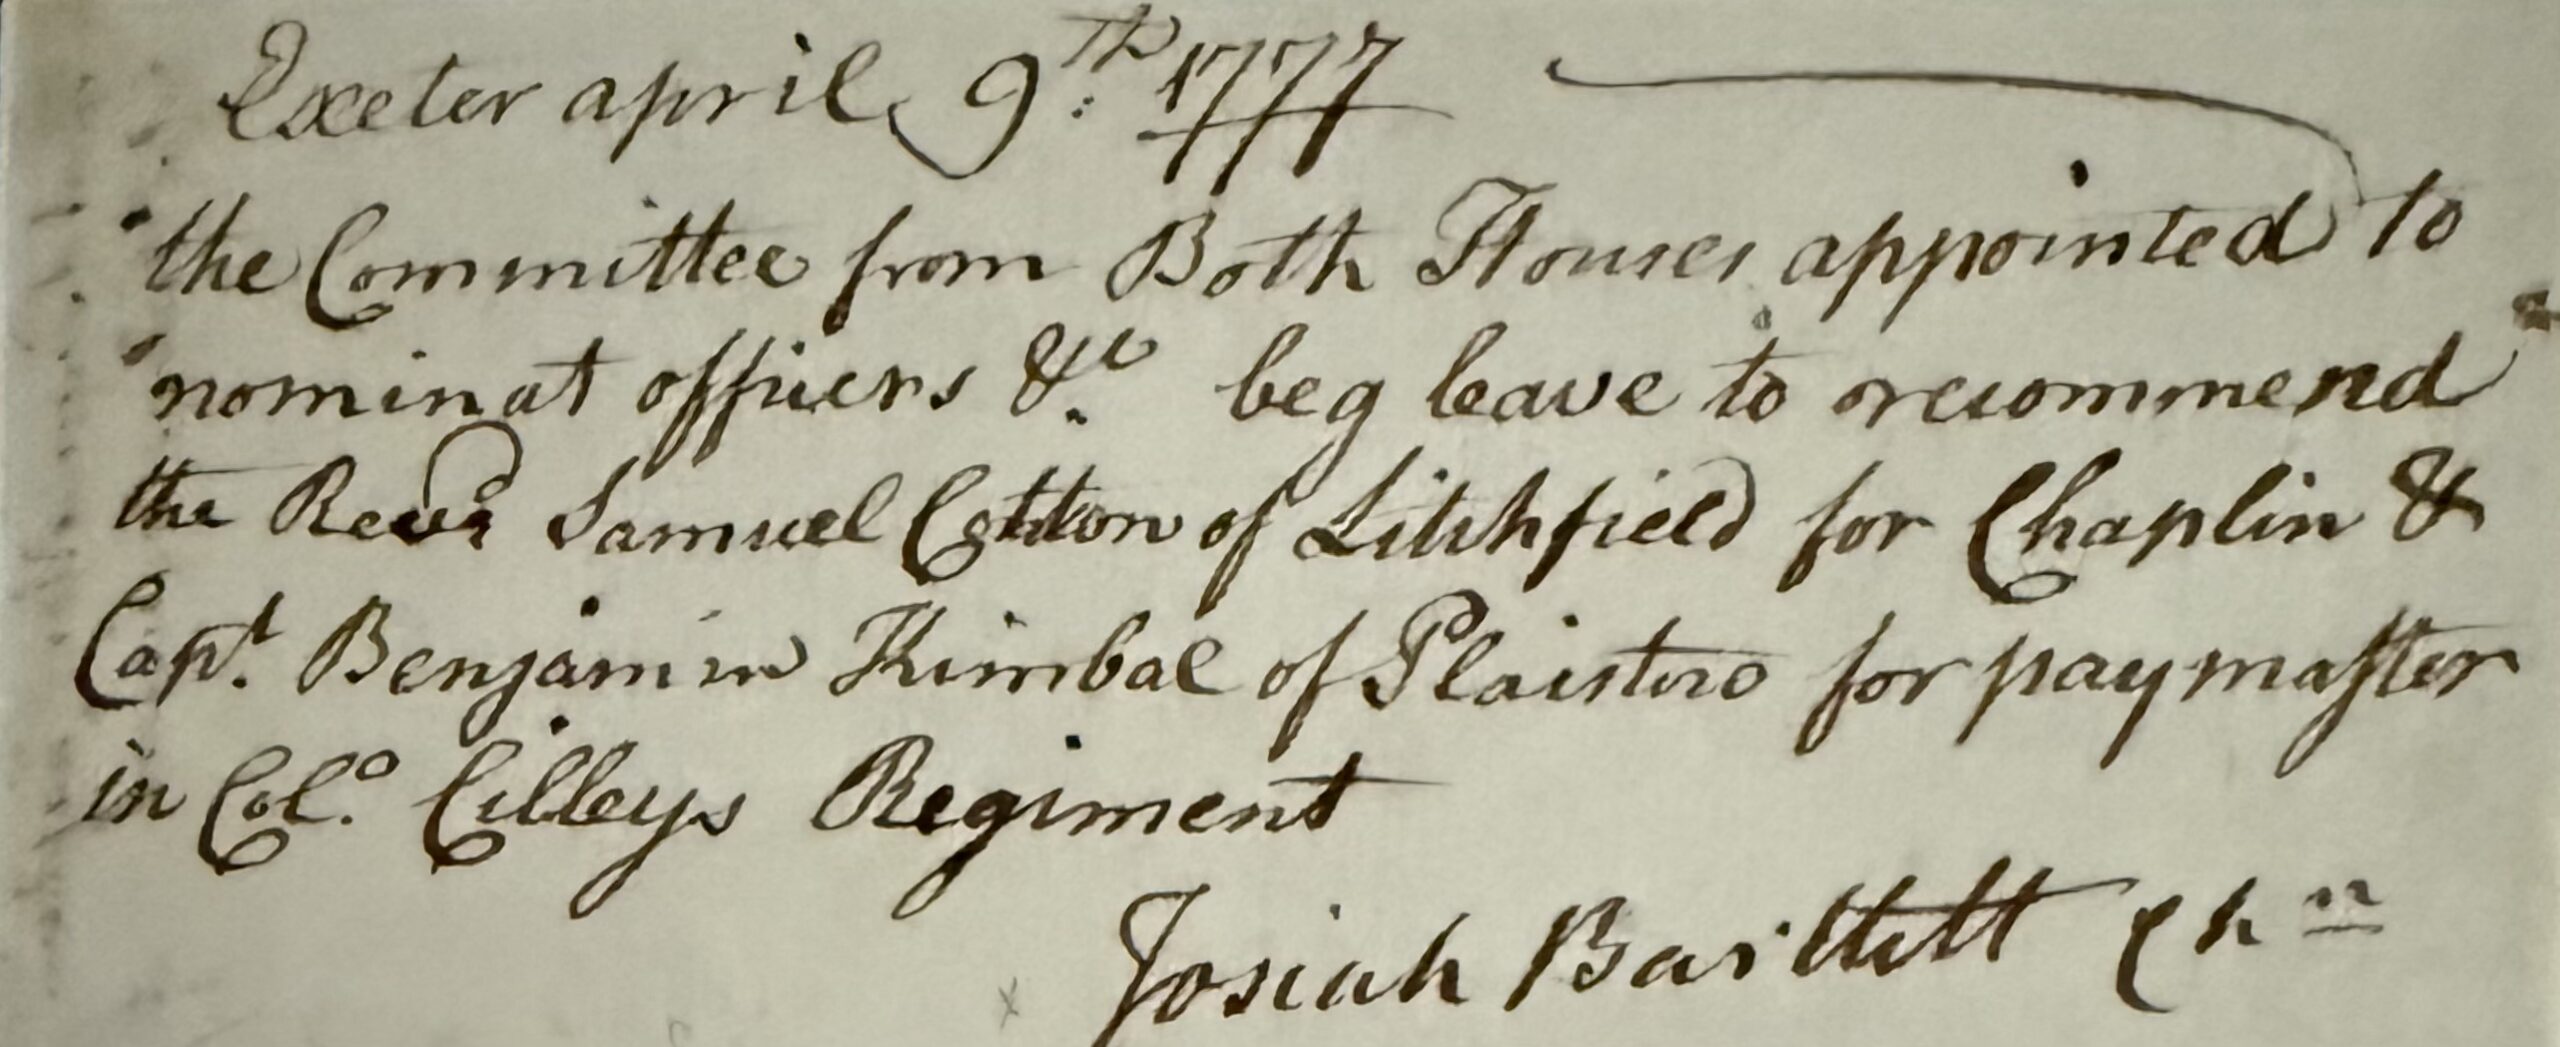 Exeter april 9th: 1777
the Committee from Both Houses appointed to
nominat officers &c. beg leave to recommend
the Revd Samuel Cotton of Litchfield for Chaplin &
Capt. Benjamin Kimbal of Plaistow for paymaster
in Colo. Cilleys Regiment
Josiah Bartlett Chn